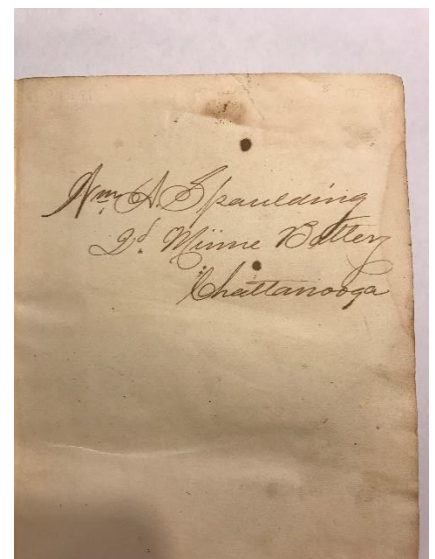 Wm. A. Spaulding
2d. Minne Battery
Chattanooga